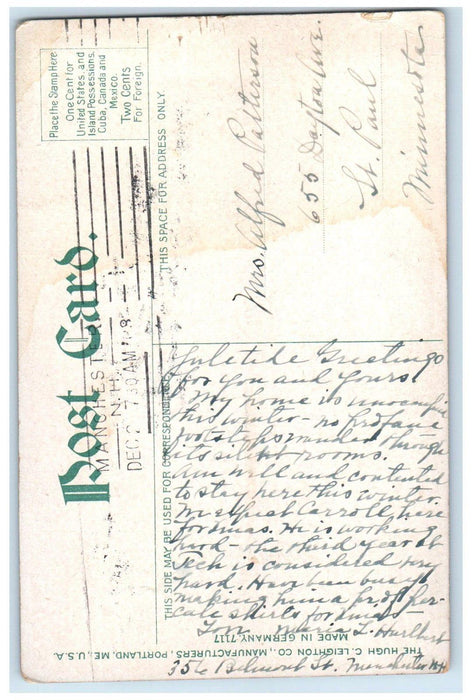 Post Card.
Place the Stamp Here
One Cent for
United States and
Island Possessions,
Cuba, Canada and
Mexico.
Two Cents
For Foreign.
MANCHESTE
N.H.
DEC 2 7 30 AM
THIS SPACE FOR ADDRESS ONLY
Mrs. Alfred Patterson
655 Dayton Ave.
St. Paul
Minnesota
THIS SIDE MAY BE USED FOR CORRESPONDENCE
Yuletide Greetings
for you and yours
My home is unoccupied
this winter - no profane
footsteps wander through
its silent rooms.
Am well and contented
to stay here this winter.
Carroll, here
for Xmas. He is working
hard - the third year at
Tech is considered very
hard. Have been busy
making him a
shirts for Xmas
Maria L. Hurlbert
356 Belmont St. Manchester NH
THE HUGH C. LEIGHTON CO., MANUFACTURERS, PORTLAND, ME., U.S.A.
MADE IN GERMANY 7117